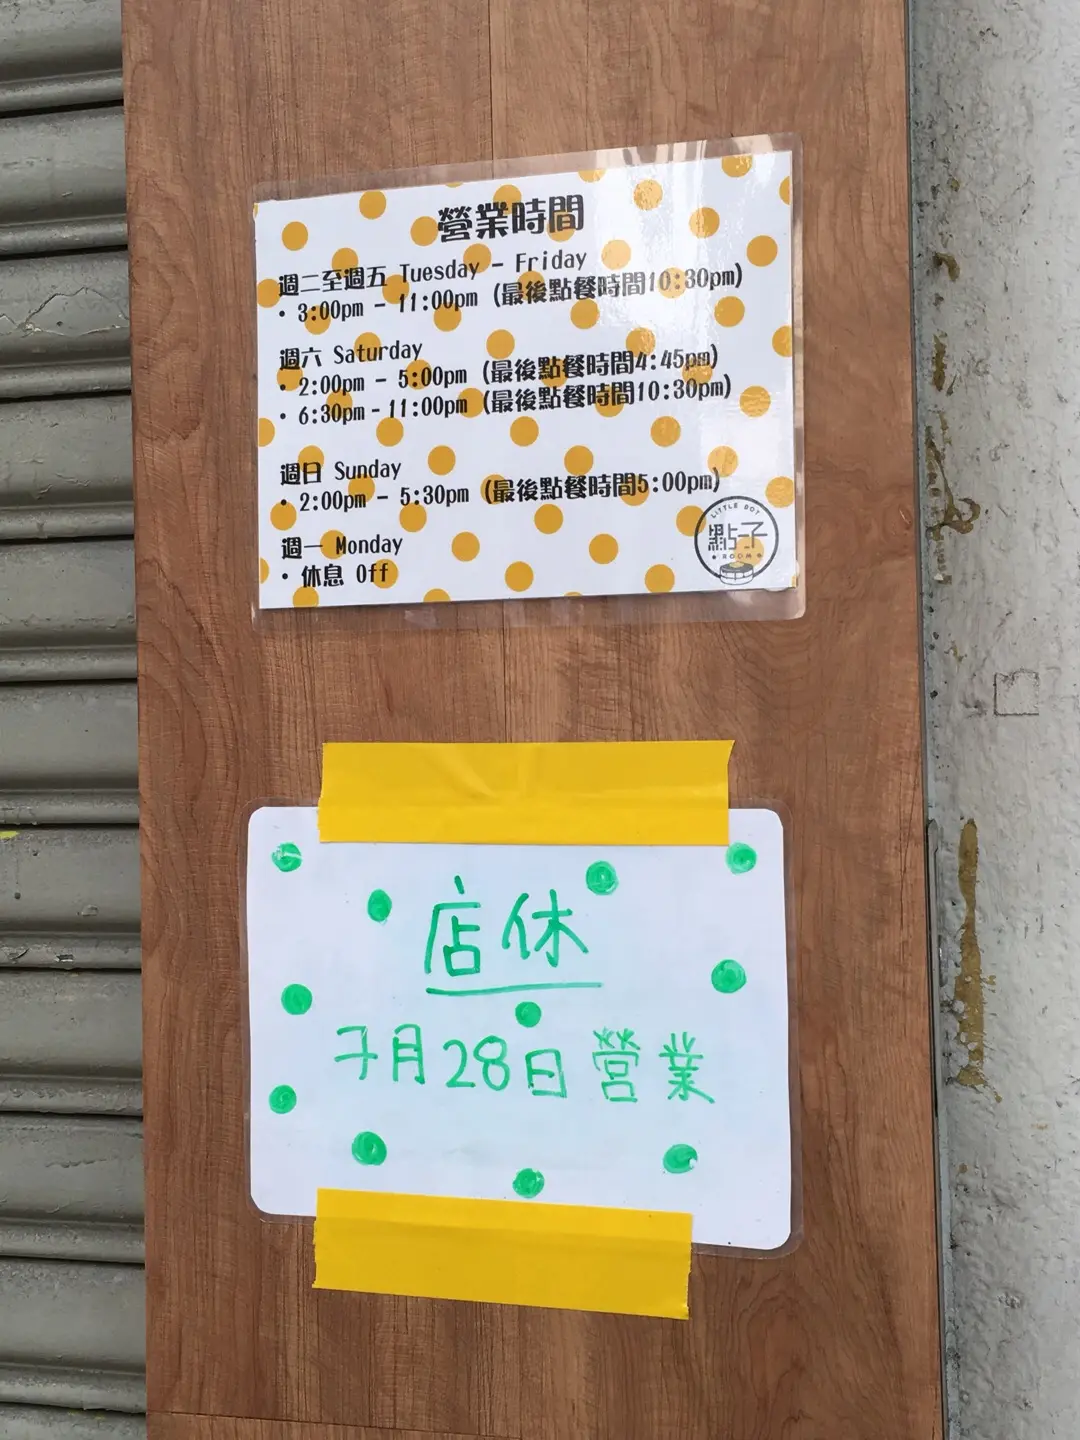 營業時間
週二至週五 Tuesday - Friday
• 3:00pm - 11:00pm (最後點餐時間10:30pm)
週六 Saturday
• 2:00pm - 5:00pm (最後點餐時間4:45pm)
• 6:30pm - 11:00pm (最後點餐時間10:30pm)
週日 Sunday
• 2:00pm - 5:30pm (最後點餐時間5:00pm)
週一 Monday
• 休息 Off
LITTLE DOT
點子
ROOM
店休
7月28日營業